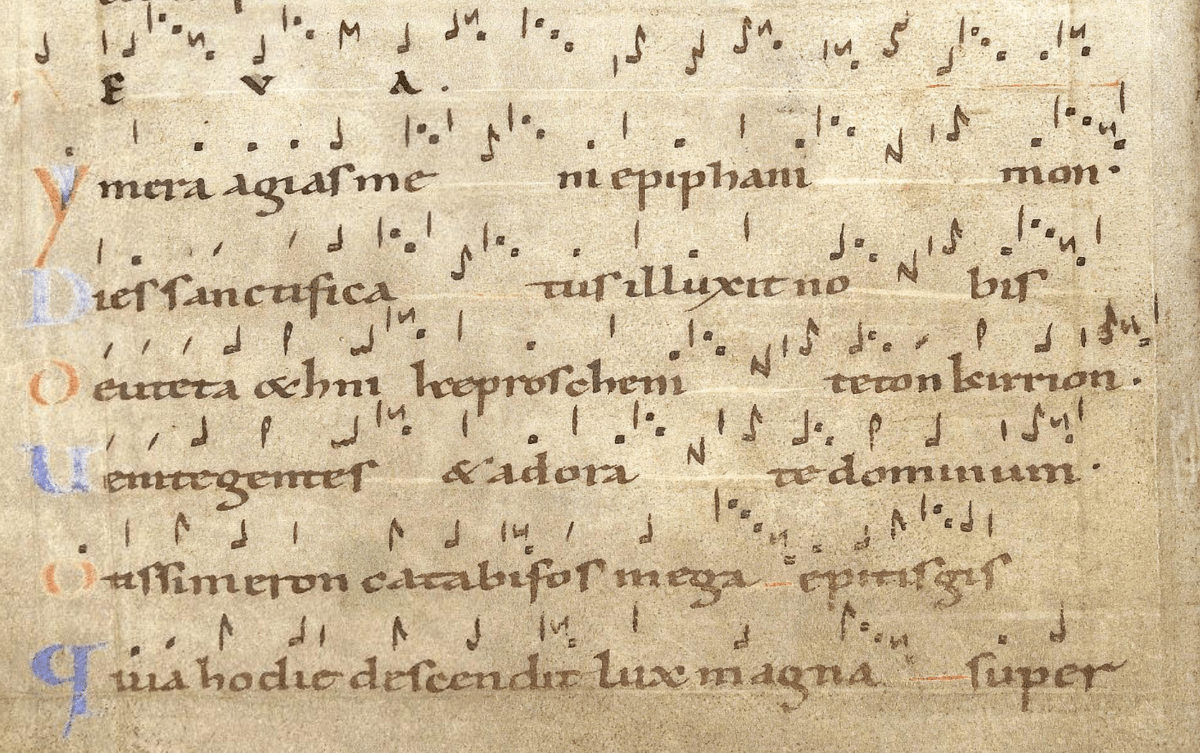 E V A .
ymera agias me ni epiphani mon·
Dies sanctifica tus illuxit no bis
O euteta &hni keeproscheni teton kirrion·
Uenite gentes & adora te dominum·
O tissimeron catabifos mega epitisgis
quia hodie descendit lux magna super